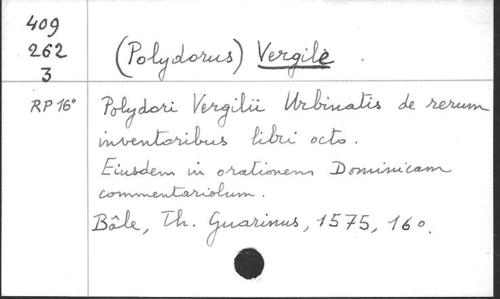 409
262
3
(Polydorus) Vergile.
RP 16°
Polydori Vergilii Urbinatis de rerum
inventoribus libri octo.
Eiusdem in orationem Dominicam
commentariolum.
Bâle, Th. Guarinus, 1575, 16o.